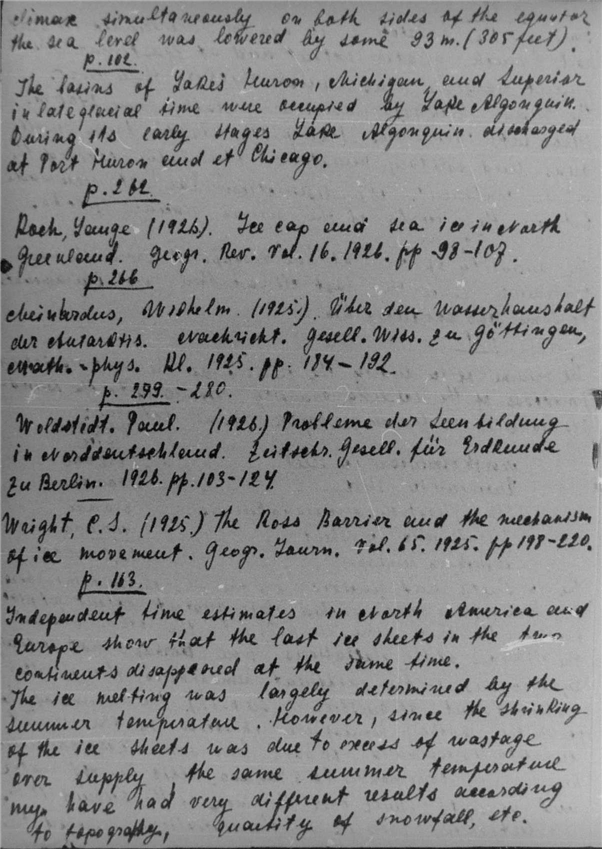 climax simultaneously on both sides of the equator
the sea level was lowered by some 93 m. (305 feet).
p. 102.
The basins of Lakes Huron, Michigan, and Superior
in late glacial time were occupied by Lake Algonquin.
During its early stages Lake Algonquin discharged
at Port Huron and et Chicago.
p. 262.
Koch, Lauge (1926). Ice cap and sea ice in North
Greenland. Geogr. Rev. Vol. 16. 1926. pp 98-107.
p. 266
Meinardus, Wilhelm. (1925.) Über den Wasserhaushalt
der Antarktis. Nachricht. Gesell. Wiss. zu Göttingen,
Math.-phys. Kl. 1925. pp. 184 - 192.
p. 279. - 280.
Woldstedt. Paul. (1926.) Probleme der Seenbildung
in Norddeutschland. Zeitschr. Gesell. für Erdkunde
zu Berlin. 1926. pp. 103-124.
Wright, C.S. (1925.) The Ross Barrier and the mechanism
of ice movement. Geogr. Journ. Vol. 65. 1925. pp 198-220.
p. 163.
Independent time estimates in North America and
Europe show that the last ice sheets in the two
continents disappeared at the same time.
The ice melting was largely determined by the
summer temperature. However, since the shrinking
of the ice sheets was due to excess of wastage
over supply, the same summer temperature
my have had very different results according
to topography, quantity of snowfall, etc.